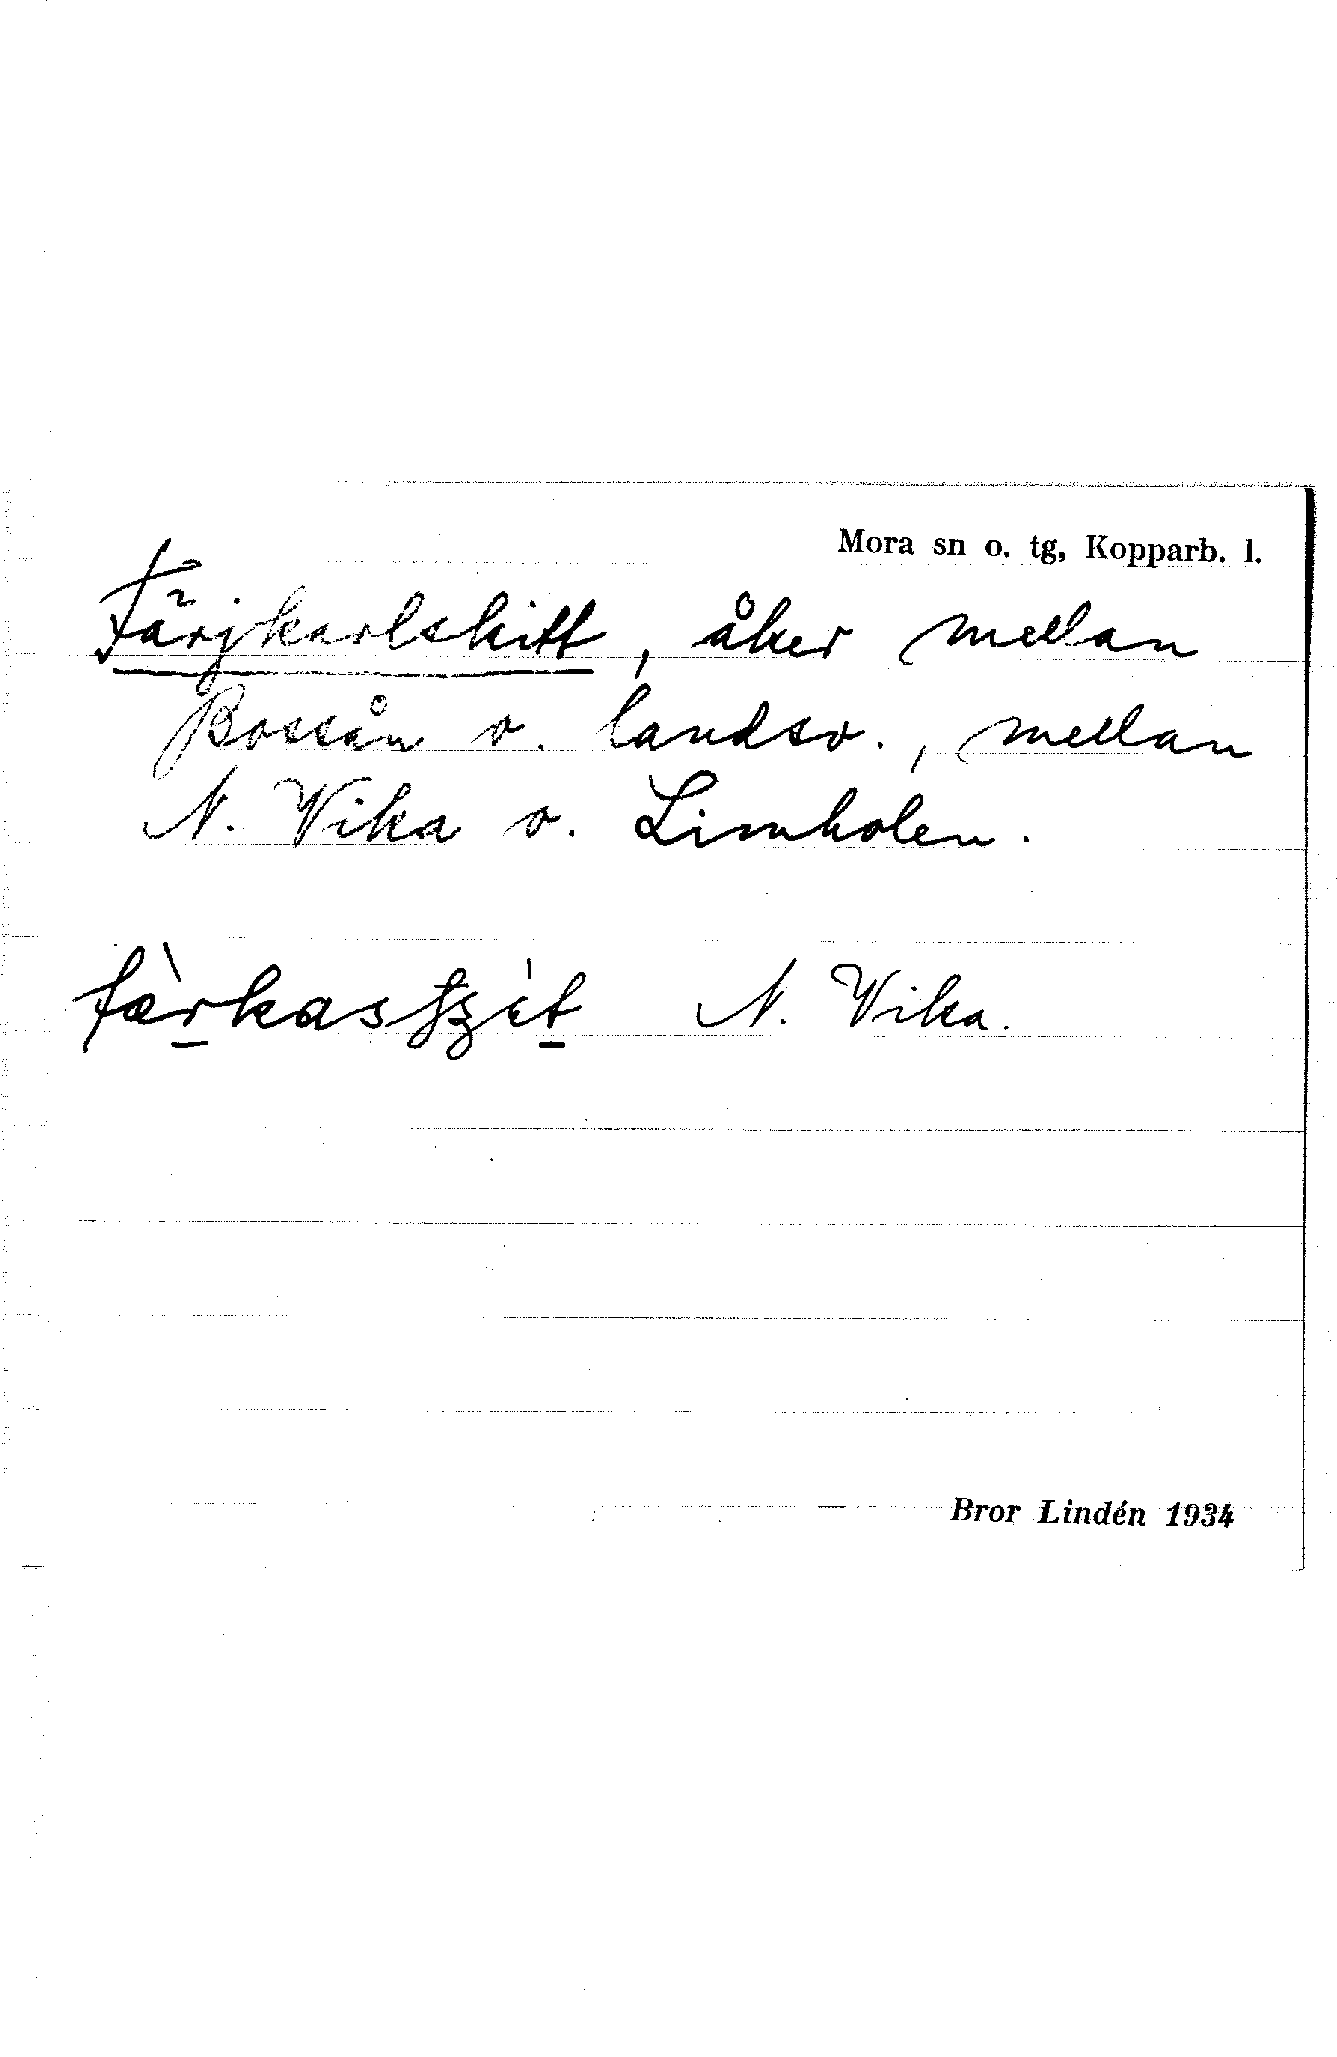 Mora sn o. tg, Kopparb. l.
Färjkarlskitt, åker mellan
Bossån o. landsv., mellan
N. Vika o. Limholen.
N. Vika.
Bror Lindén 1934